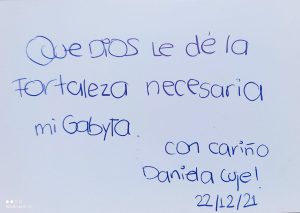 Que DIOS Le dé la
Fortaleza necesaria
mi Gabyta.
con cariño
Daniela Cuje!
22/12/21